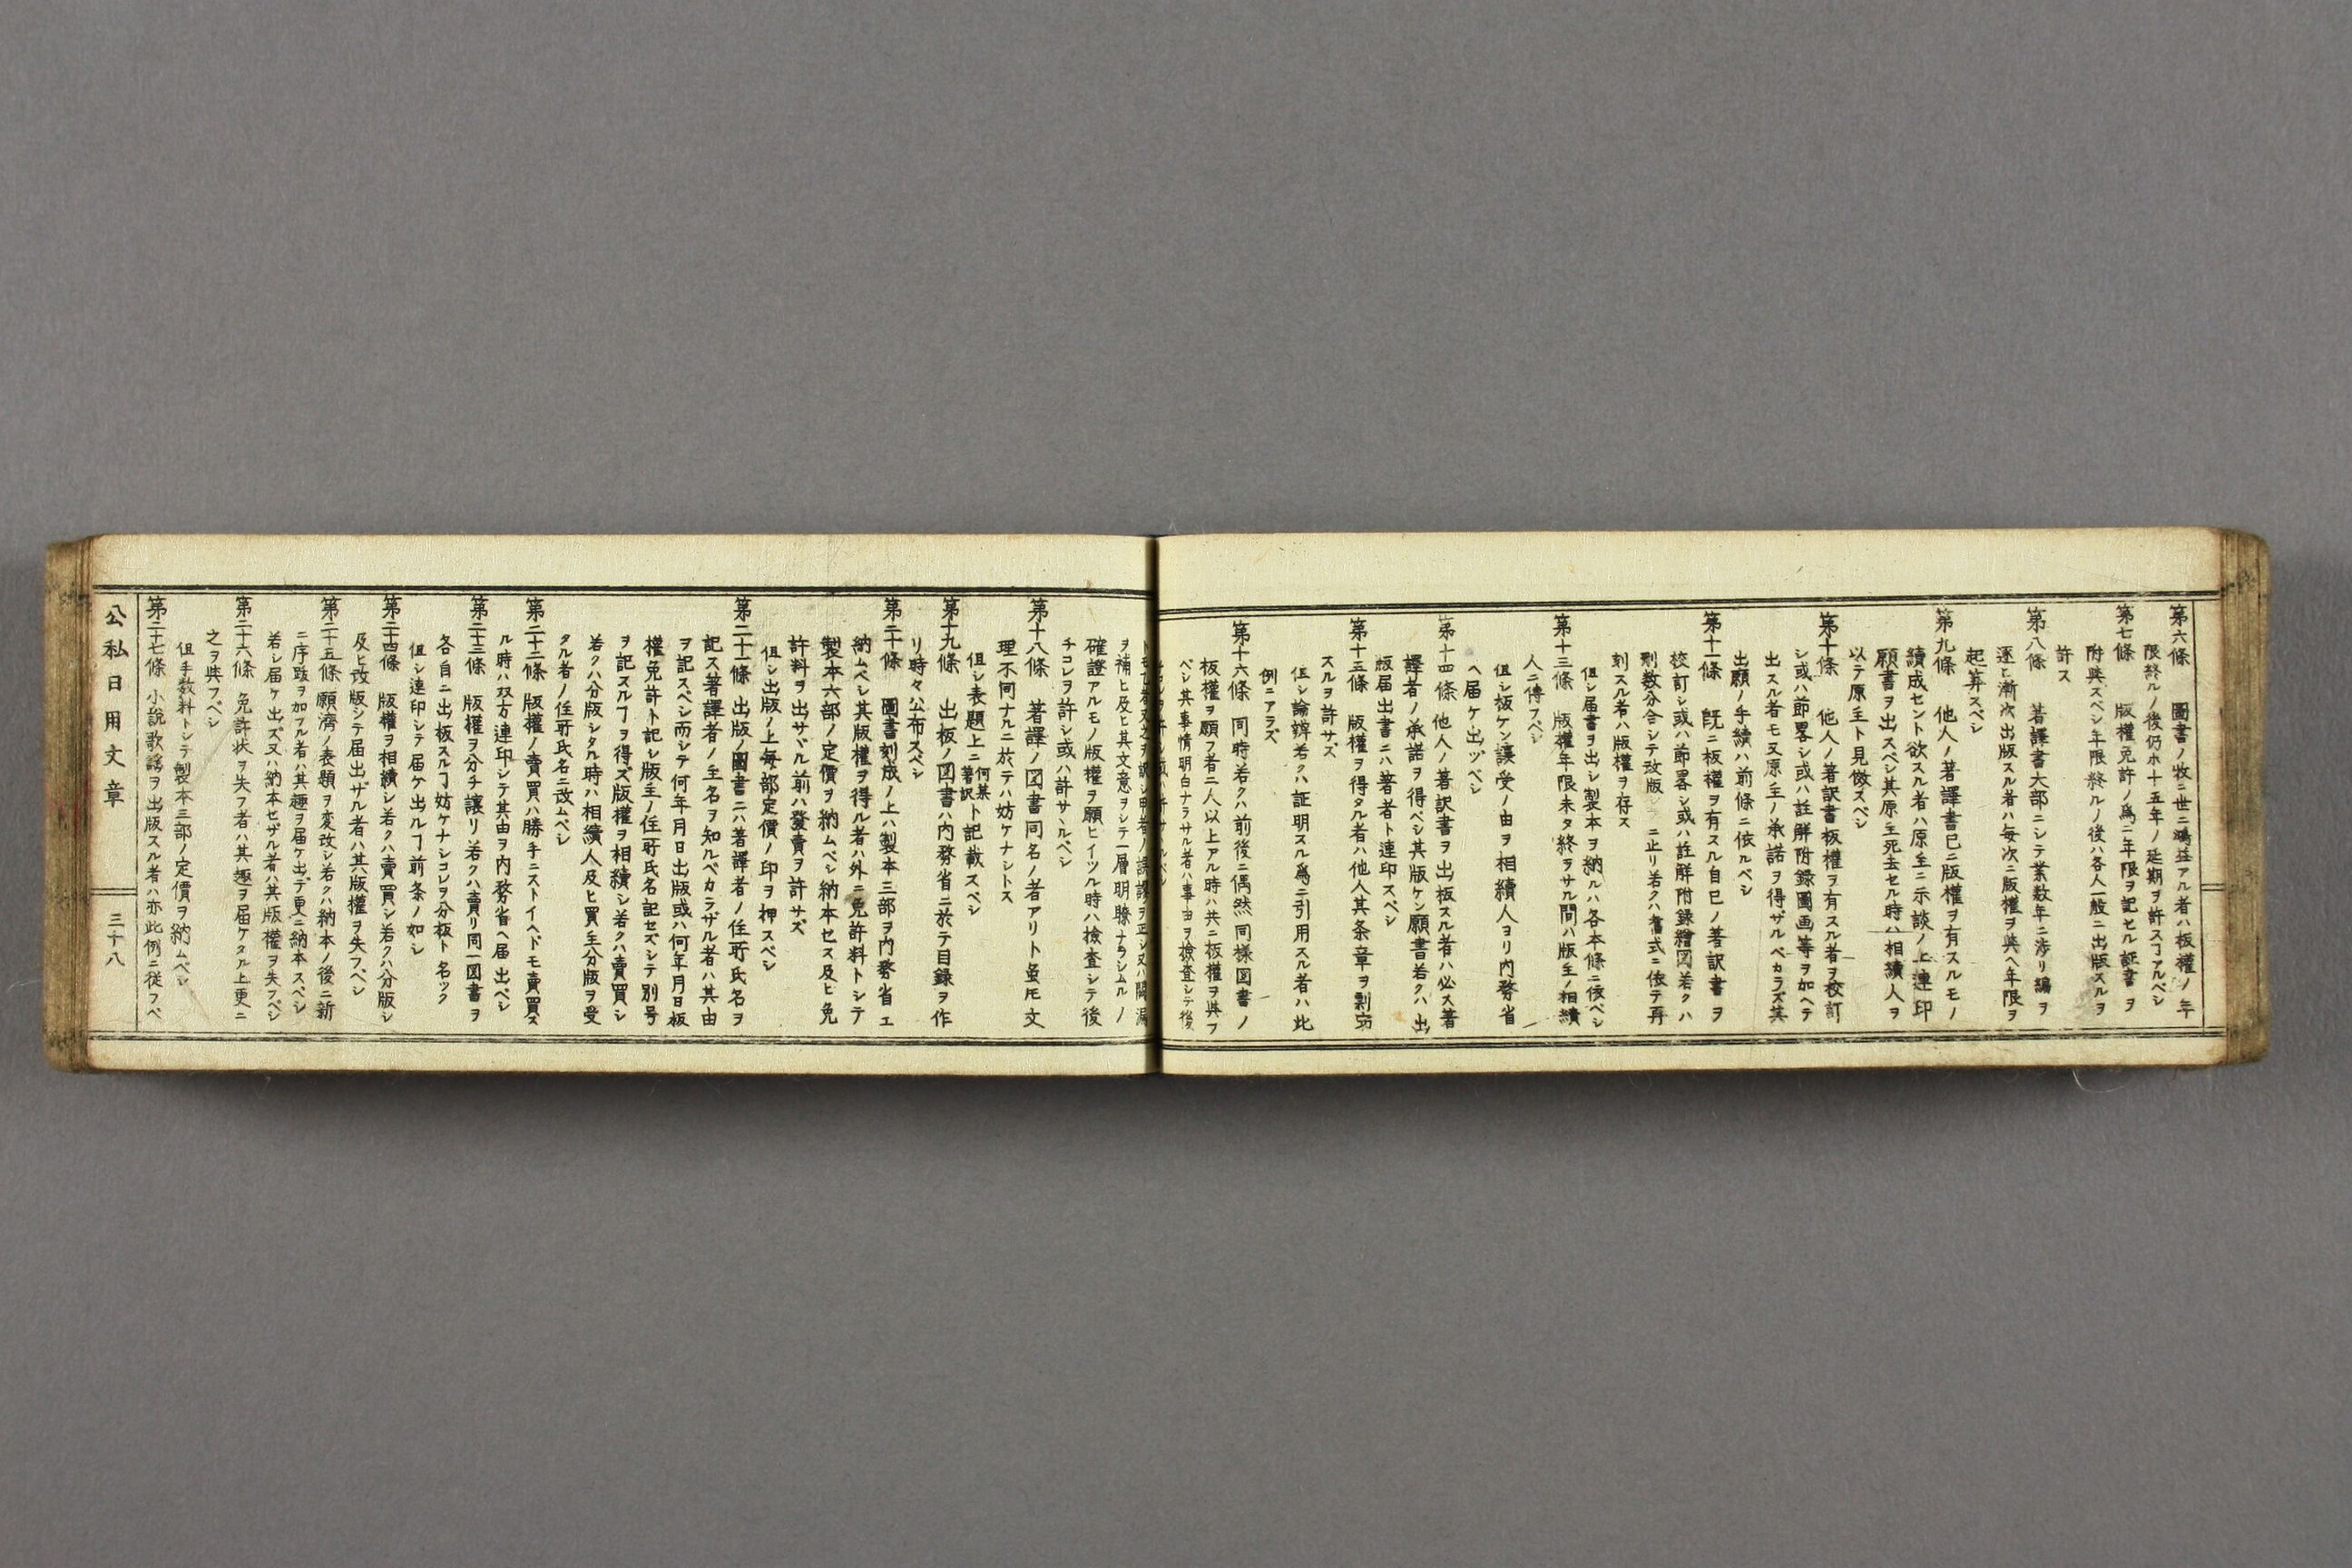 第六條 圖書ノ牧ニ世ニ鴻益アル者ハ板權ノ年
限終ルノ後仍ホ十五年ノ延期ヲ許スヿアルベシ
第七條 版權免許ノ爲ニ年限ヲ記セル証書ヲ
附與スベシ年限終ルノ後ハ各人一般ニ出版スルヲ
許ス
第八條 著譯書大部ニシテ業数年ニ渉リ編ヲ
逐ヒ漸次出版スル者ハ毎次ニ版權ヲ與ヘ年限ヲ
起算スベシ
第九條 他人ノ著譯書已ニ版權ヲ有スルモノ
續成セント欲スル者ハ原主ニ示談ノ上連印
願書ヲ出スベシ其原主死去セル時ハ相續人ヲ
以テ原主ト見做スベシ
第十條 他人ノ著訳書板權ヲ有スル者ヲ校訂
シ或ハ節畧シ或ハ註解附録圖画等ヲ加ヘテ
出スル者モ又原主ノ承諾ヲ得ザルベカラズ其
出願ノ手續ハ前條ニ依ルベシ
第十一條 既ニ板權ヲ有スル自己ノ著訳書ヲ
校訂シ或ハ節畧シ或ハ註解附録繪図若クハ
刪数分合シテ改版 ニ止リ若クハ舊式ニ依テ再
刻スル者ハ版權ヲ存ス
但シ届書ヲ出シ製本ヲ納ルハ各本條ニ依ベシ
第十三條 版權年限未タ終ヲサル間ハ版主ノ相續
人ニ傳フベシ
但シ板ケン讓受ノ由ヲ相續人ヨリ内務省
ヘ届ケ出ツベシ
第十四條 他人ノ著訳書ヲ出板スル者ハ必ス著
譯者ノ承諾ヲ得ベシ其版ケン願書若クハ出
版届出書ニハ著者ト連印スベシ
第十五條 版權ヲ得タル者ハ他人其条章ヲ剽窃
スルヲ許サズ
但シ論辨若クハ証明スル爲ニ引用スル者ハ此
例ニアラズ
第十六條 同時若クハ前後ニ偶然同樣図書ノ
板權ヲ願フ者二人以上アル時ハ共ニ板權ヲ與フ
ベシ其事情明白ナラサル者ハ事由ヲ檢査シテ後
ヲ補ヒ及ヒ其文意ヲシテ一層明瞭ナラシムルノ
確證アルモノ版權ヲ願ヒイツル時ハ檢査シテ後
チコレヲ許シ或ハ許サヽルベシ
第十八條 著譯ノ図書同名ノ者アリト虽モ文
理不同ナルニ於テハ妨ケナシトス
但シ表題上ニ何某著訳ト記載スベシ
第十九條 出板ノ図書ハ内務省ニ於テ目録ヲ作
リ時々公布スベシ
第二十條 圖書刻成ノ上ハ製本三部ヲ内務省エ
納ムベシ其版權ヲ得ル者ハ外ニ免許料トシテ
製本六部ノ定價ヲ納ムベシ納本セス及ヒ免
許料ヲ出サヾル前ハ發賣ヲ許サズ
但シ出版ノ上毎部定價ノ印ヲ押スベシ
第二十一條 出版ノ圖書ニハ著譯者ノ住所氏名ヲ
記ス著譯者ノ主名ヲ知ルベカラザル者ハ其由
ヲ記スベシ而シテ何年月日出版或ハ何年月日板
權免許ト記シ版主ノ住所氏名記セズシテ別号
ヲ記スルヿヲ得ズ版權ヲ相續シ若クハ賣買シ
若クハ分版シタル時ハ相續人及ヒ買主分版ヲ受
タル者ノ住所氏名ニ改ムベシ
第二十二條 版權ノ賣買ハ勝手ニストイヘドモ賣買ス
ル時ハ双方連印シテ其由ヲ内務省ヘ届出ベシ
第二十三條 版權ヲ分チ讓リ若クハ賣リ同一図書ヲ
各自ニ出板スルヿ妨ケナシコレヲ分板ト名ツク
但シ連印シテ届ケ出ルヿ前条ノ如シ
第二十四條 版權ヲ相續シ若クハ賣買シ若クハ分版シ
及ヒ改版シテ届出ザル者ハ其版權ヲ失フベシ
第二十五條 願濟ノ表題ヲ変改シ若クハ納本ノ後ニ新
ニ序跋ヲ加フル者ハ其趣ヲ届ケ出デ更ニ納本スベシ
若シ届ケ出ズ又ハ納本セザル者ハ其版權ヲ失フベシ
第二十六條 免許状ヲ失フ者ハ其趣ヲ届ケタル上更ニ
之ヲ與フベシ
但手数料トシテ製本三部ノ定價ヲ納ムベシ
第二十七條 小説歌謠ヲ出版スル者ハ亦此例ニ從フベ
公私日用文章
三十八